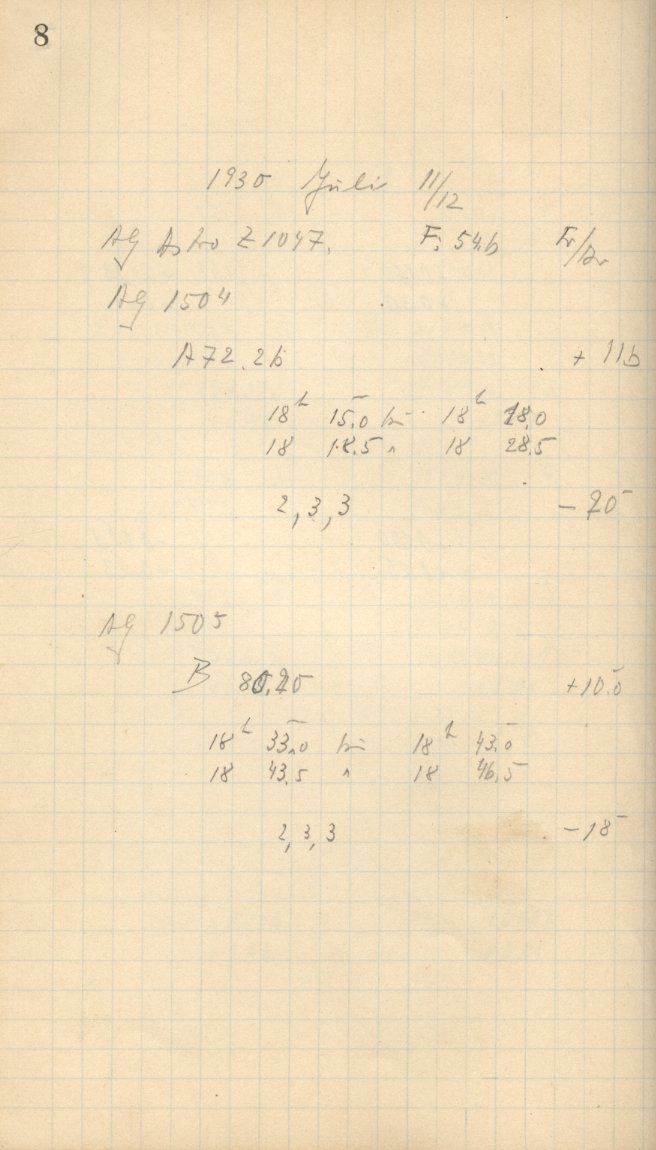 8
1930 Juli 11/12
AG Astro Z 1047. F: 54b Fr/Ar
AG 1504
A 72.26 + 11b
18h 15.0 bis 18h 18.0
18 18.5 " 18 28.5
2, 3, 3 - 20
AG 1505
B 80.20 +10.0
18h 33.0 bis 18h 43.0
18 43.5 " 18 46.5
2, 3, 3 - 18